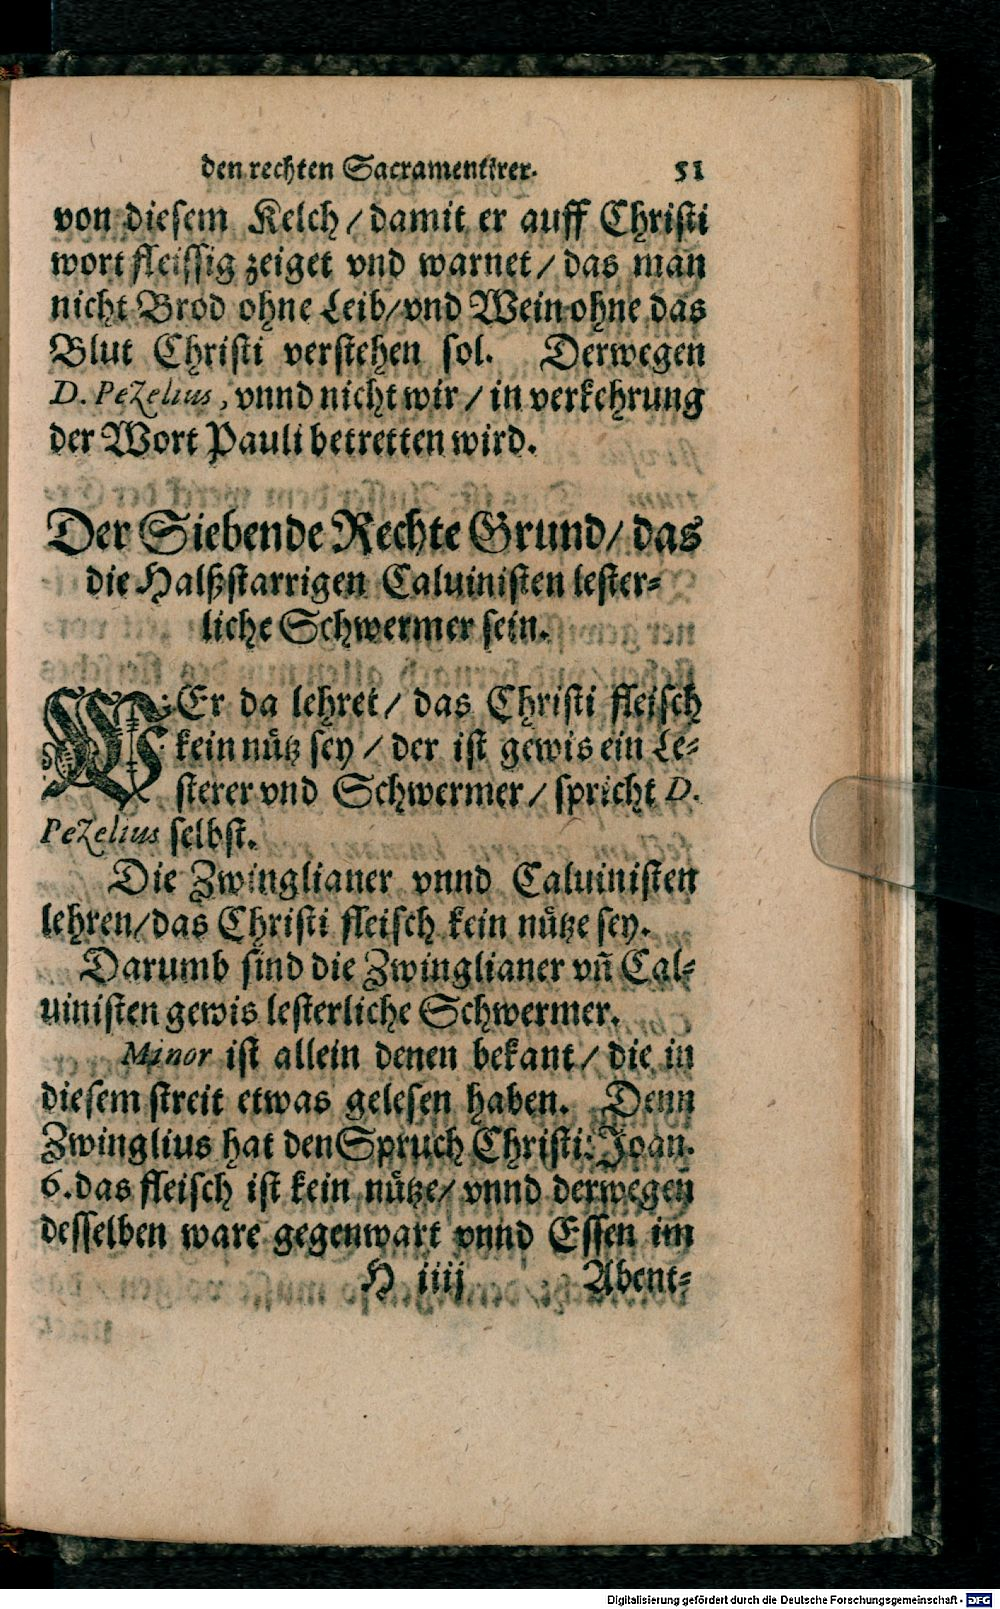 den rechten Sacramentirer. 51
von diesem Kelch / damit er auff Christi
wort fleissig zeiget vnd warnet / das man
nicht Brod ohne Leib / vnd Wein ohne das
Blut Christi verstehen sol. Derwegen
D. Pezelius, vnnd nicht wir / in verkehrung
der Wort Pauli betretten wird.
Der Siebende Rechte Grund / das
die Halßstarrigen Caluinisten lester-
liche Schwermer sein.
WEr da lehret / das Christi fleisch
kein nütz sey / der ist gewis ein Le-
sterer vnd Schwermer / spricht D.
Pezelius selbst.
Die Zwinglianer vnnd Caluinisten
lehren / das Christi fleisch kein nütze sey.
Darumb sind die Zwinglianer vn̄ Cal-
uinisten gewis lesterliche Schwermer.
Minor ist allein denen bekant / die in
diesem streit etwas gelesen haben. Denn
Zwinglius hat den Spruch Christi: Joan.
6. das fleisch ist kein nütze / vnnd derwegen
desselben ware gegenwart vnnd Essen im
H iiij Abent-
Digitalisierung gefördert durch die Deutsche Forschungsgemeinschaft - DFG